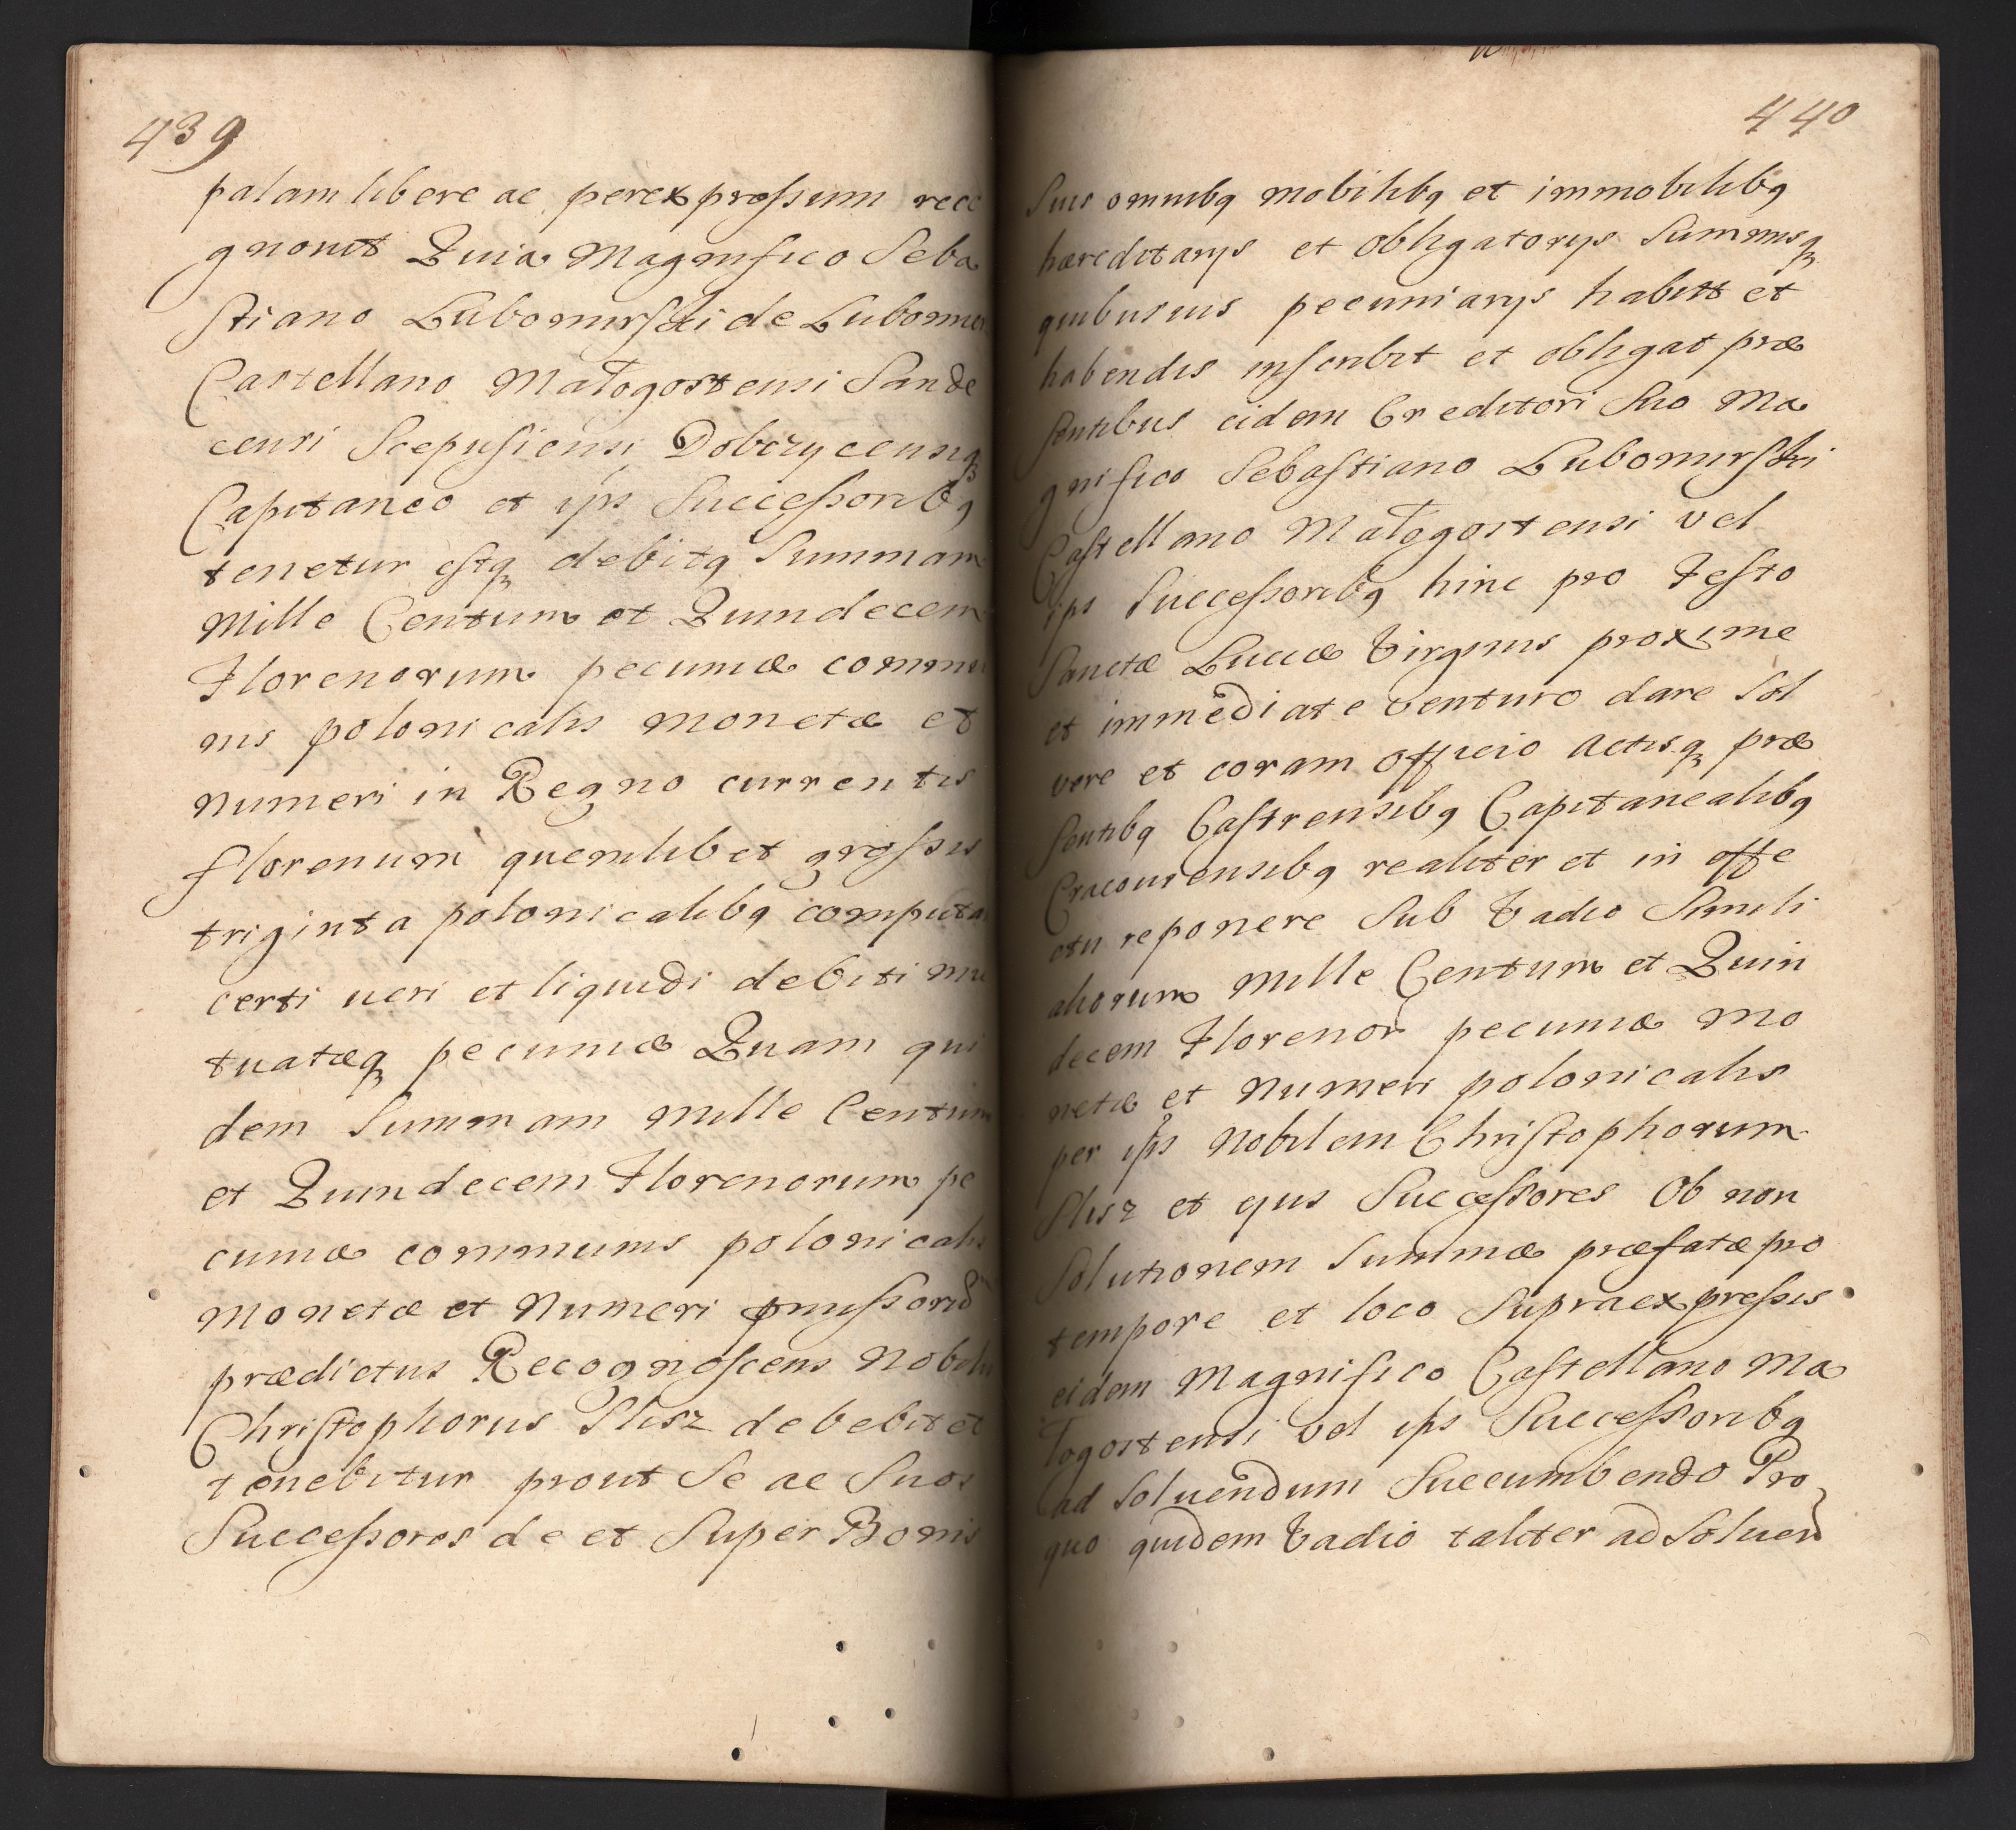 439
palam libere ac perexpressum reco
gnovit Quia Magnifico Seba
stiano Lubomirski de Lubomierz
Castellano Małogostensi Sande
censi Scepusiensi Dobczycensiq
Capitaneo et ips Successoribq
tenetur estq debitq Summam
Mille Centum et Quindecem
Florenorum pecuniæ commu
nis polonicalis monetæ et
numeri in Regno currentis
florenum quemlibet grossis
triginta polonicalibq computan
certi veri et liquidi debiti mu
tuatæq pecuniæ Quam qui
dem Summam Mille Centum
et Quindecem Florenorum pe
cuniæ communis polonicalis
Monetæ et Numeri pmissorū
prædictus Recognoscens Nobilis
Christophorus Slisz debebit et
tenebitur prout Se ac Suos
Successores de et Super Bonis
440
Suis omnibq mobilibq et immobilibq
hæreditarys et obligatorys Summisq
quibusvis pecuniarys habitt et
habendis inscribit et obligat præ
sentibus eidem Creditori Suo Ma
gnifico Sebastiano Lubomirski
Castellano Małogostensi vel
ips Successoribq hinc pro Festo
Sanctæ Luciæ Virginis proxime
et immediate venturo dare Sol
vere et coram officio actisq præ
sentibq Castrensibq Capitanealibq
Cracoviensibq realiter et in effe
ctu reponere Sub Vadio Simili
aliorum Mille Centum et Quin
decem Florenor pecuniæ mo
netæ et Numeri polonicalis
per ips Nobilem Christophorum
Slisz et eyus Successores Ob non
Solutionem Summæ præfatæ pro
tempore et loco Supraexpressis
eidem Magnifico Castellano Ma
łogostensi vel ips Successoribq
ad Solvendum Succumbendo Pro
quo quidem Vadio taliter ad Solven